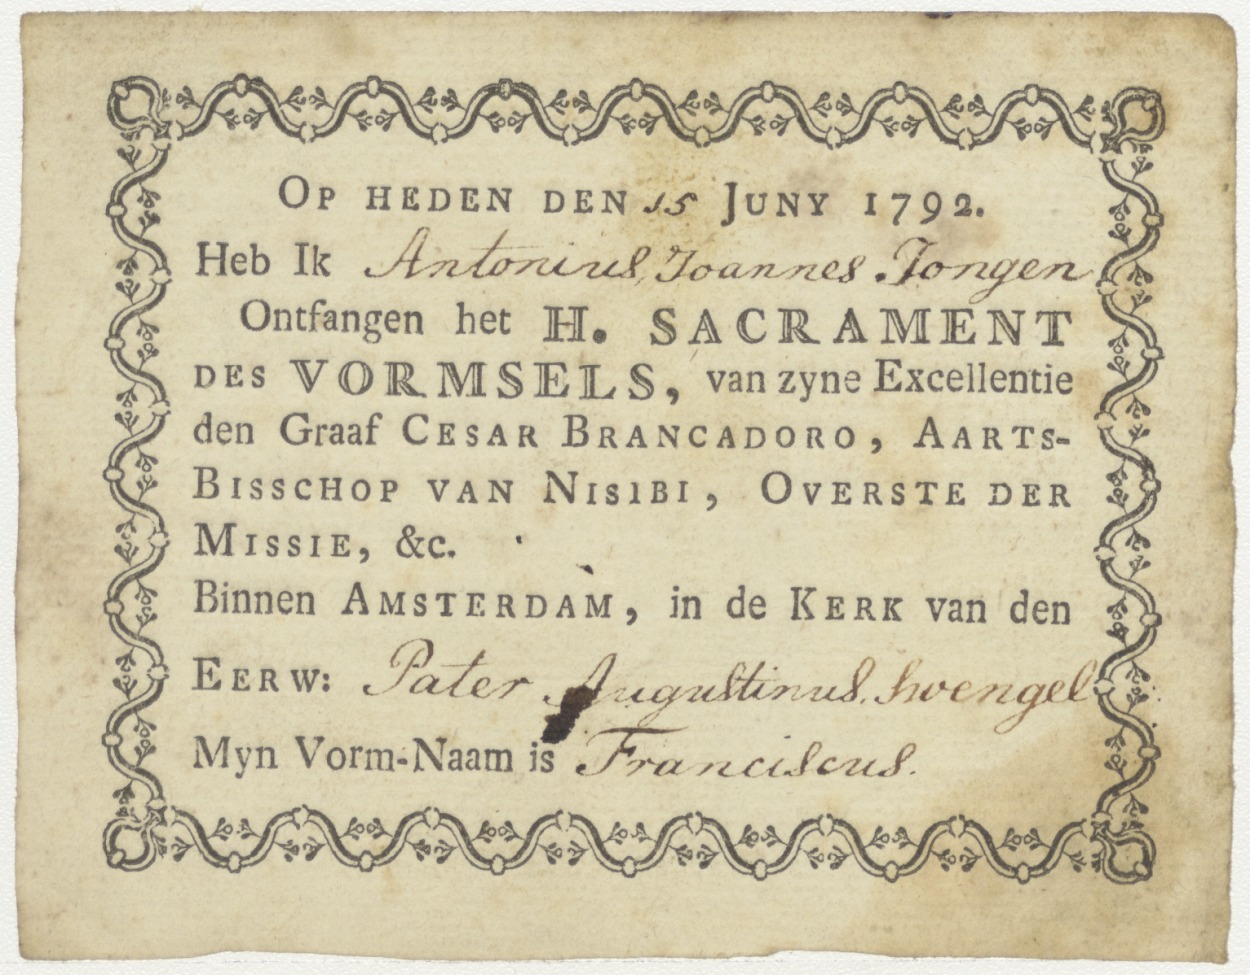 OP HEDEN DEN 15 JUNY 1792.
Heb Ik Antonius Joannes Jongen
Ontfangen het H. SACRAMENT
DES VORMSELS, van zyne Excellentie
den Graaf CESAR BRANCADORO, AARTS-
BISSCHOP VAN NISIBI, OVERSTE DER
MISSIE, &c.
Binnen AMSTERDAM, in de KERK van den
EERW: Pater Augustinus Swengel
Myn Vorm-Naam is Franciscus.